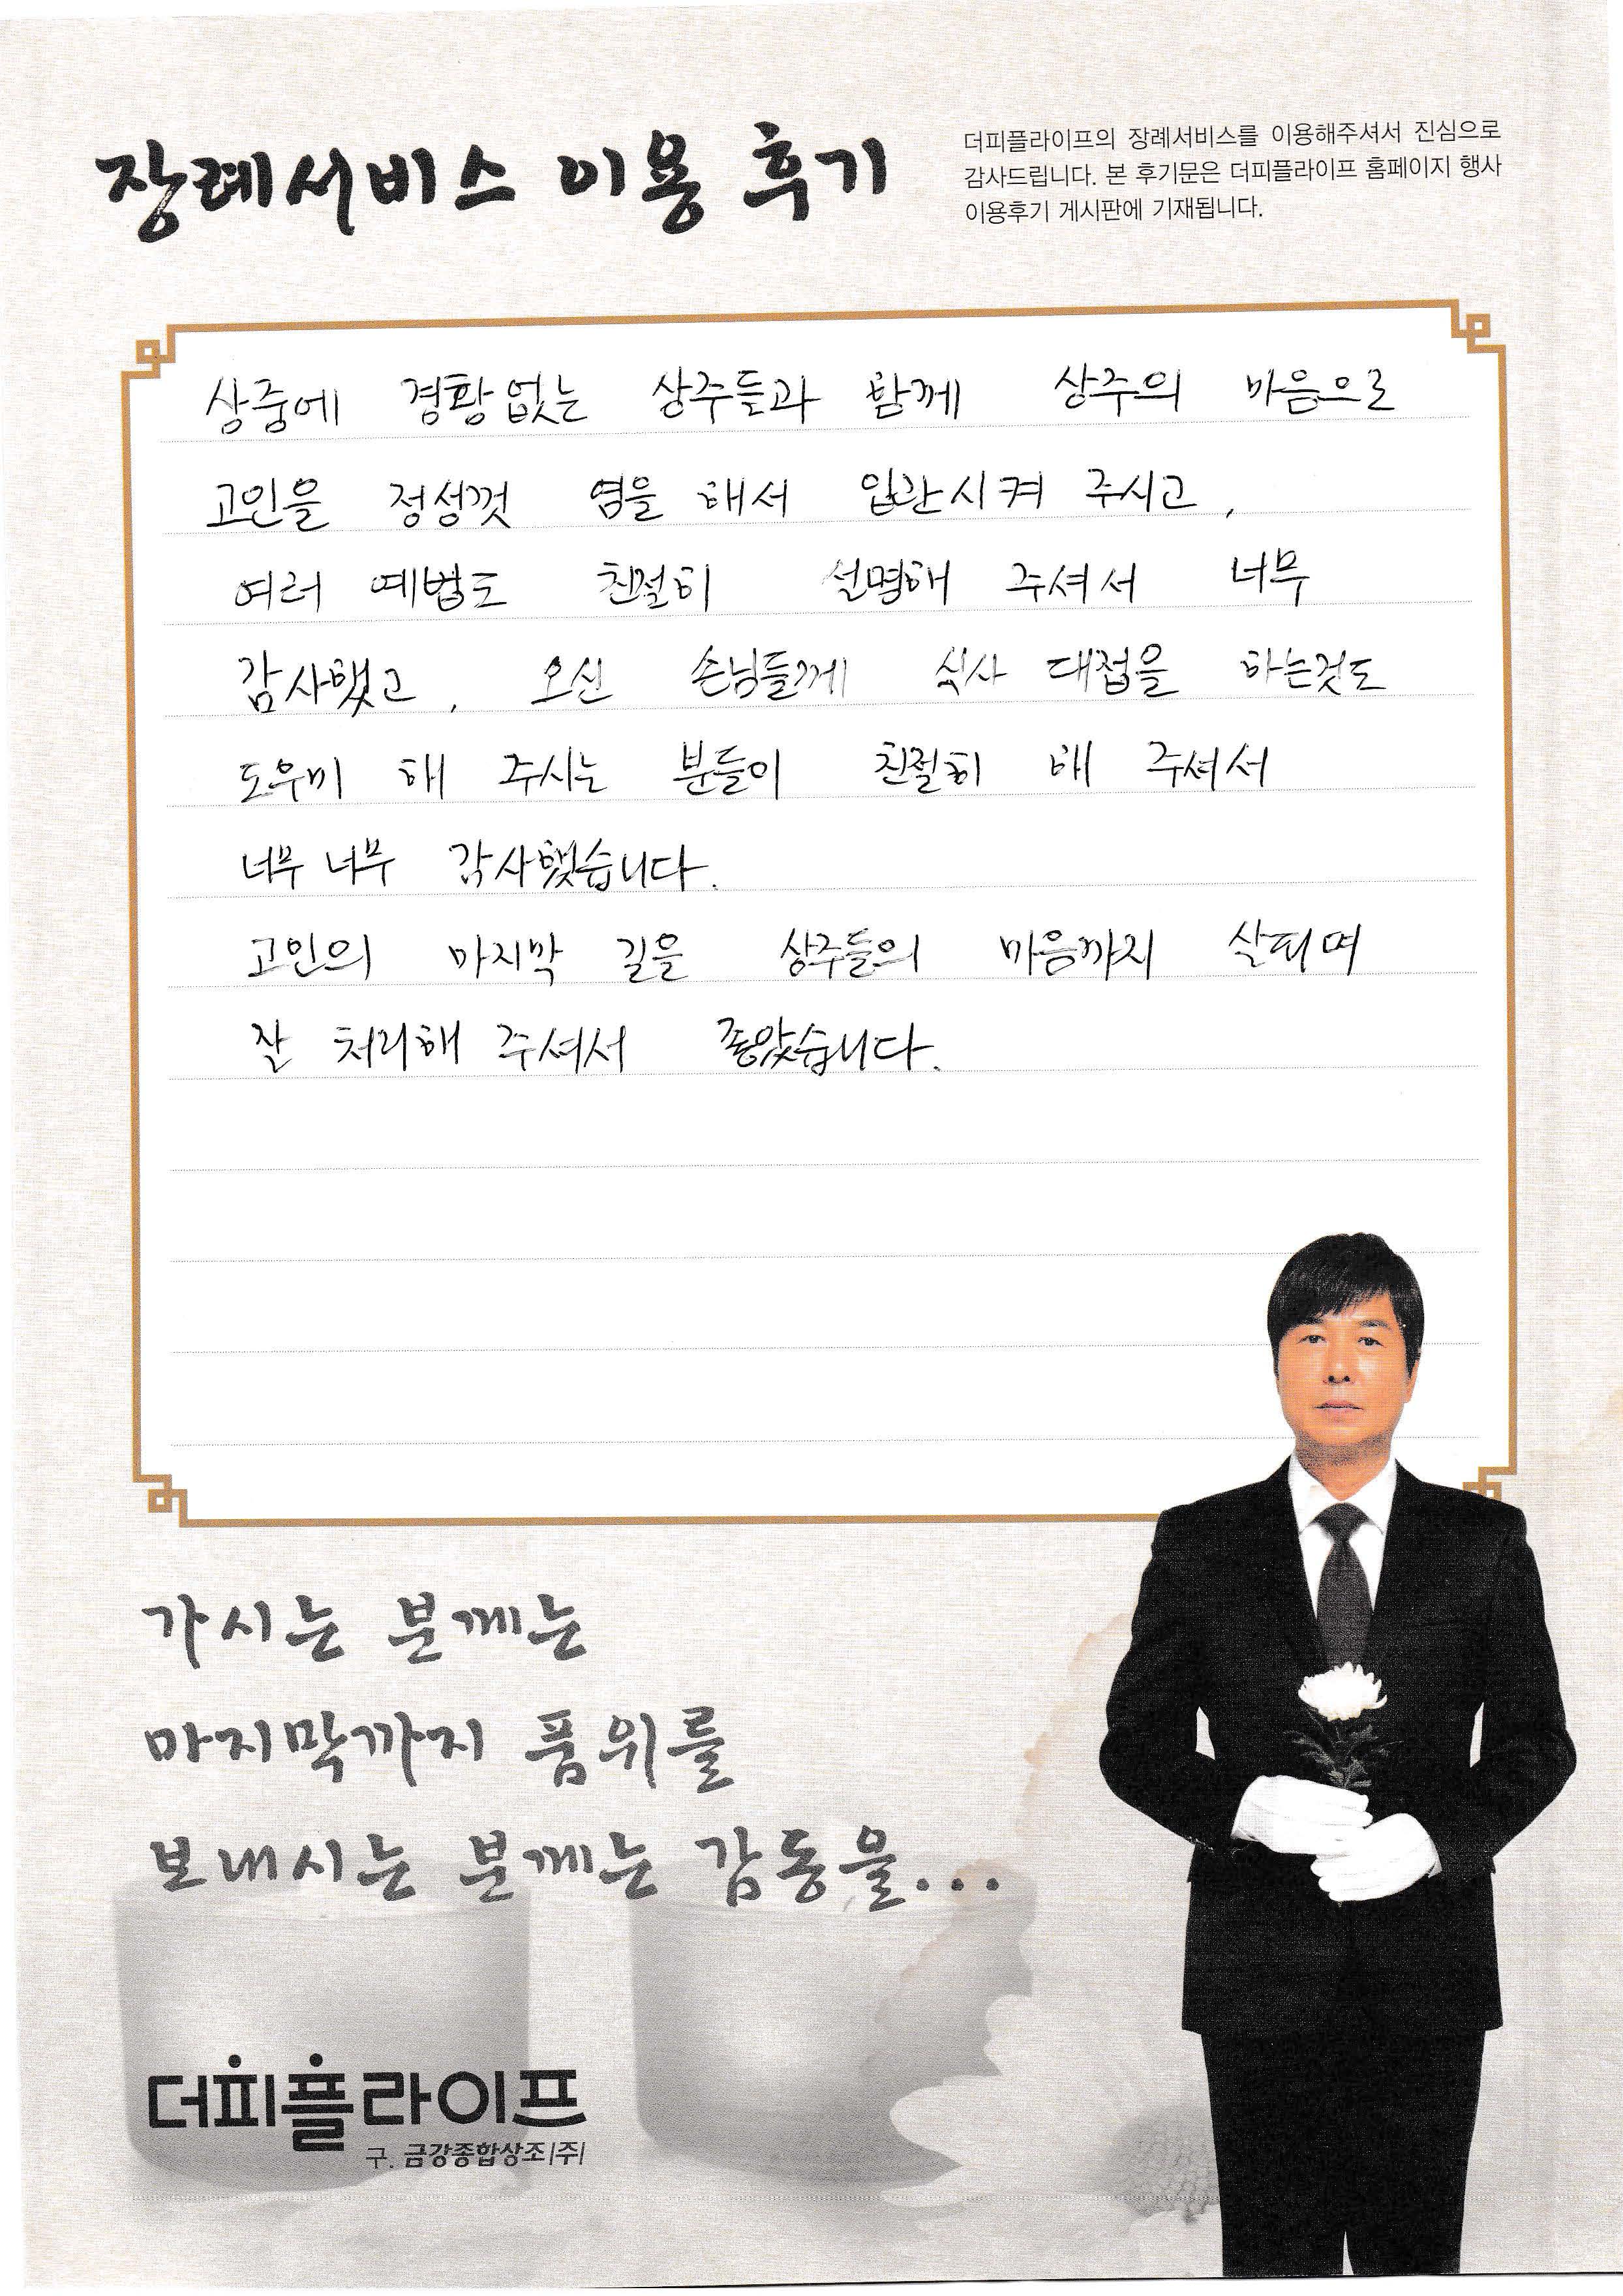 장례서비스 이용 후기
더피플라이프의 장례서비스를 이용해주셔서 진심으로
감사드립니다. 본 후기문은 더피플라이프 홈페이지 행사
이용후기 게시판에 기재됩니다.
상중에 경황없는 상주들과 함께 상주의 마음으로
고인을 정성껏 염을 해서 입관시켜 주시고,
여러 예법도 친절히 설명해 주셔서 너무
감사했고, 오신 손님들께 식사 대접을 하는것도
도우미 해 주시는 분들이 친절히 해 주셔서
너무 너무 감사했습니다.
고인의 마지막 길을 상주들의 마음까지 살피며
잘 처리해 주셔서 좋았습니다.
가시는 분께는
마지막까지 품위를
보내시는 분께는 감동을...
더피플라이프
구. 금강종합상조|주|